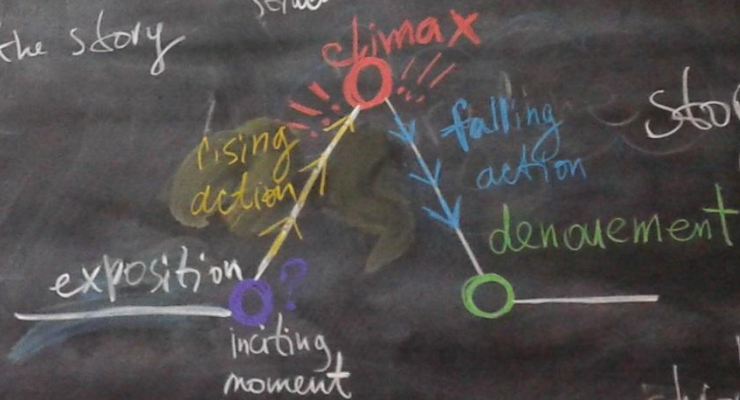 the story
climax
rising
action
falling
action
denouement
exposition
?
inciting
moment